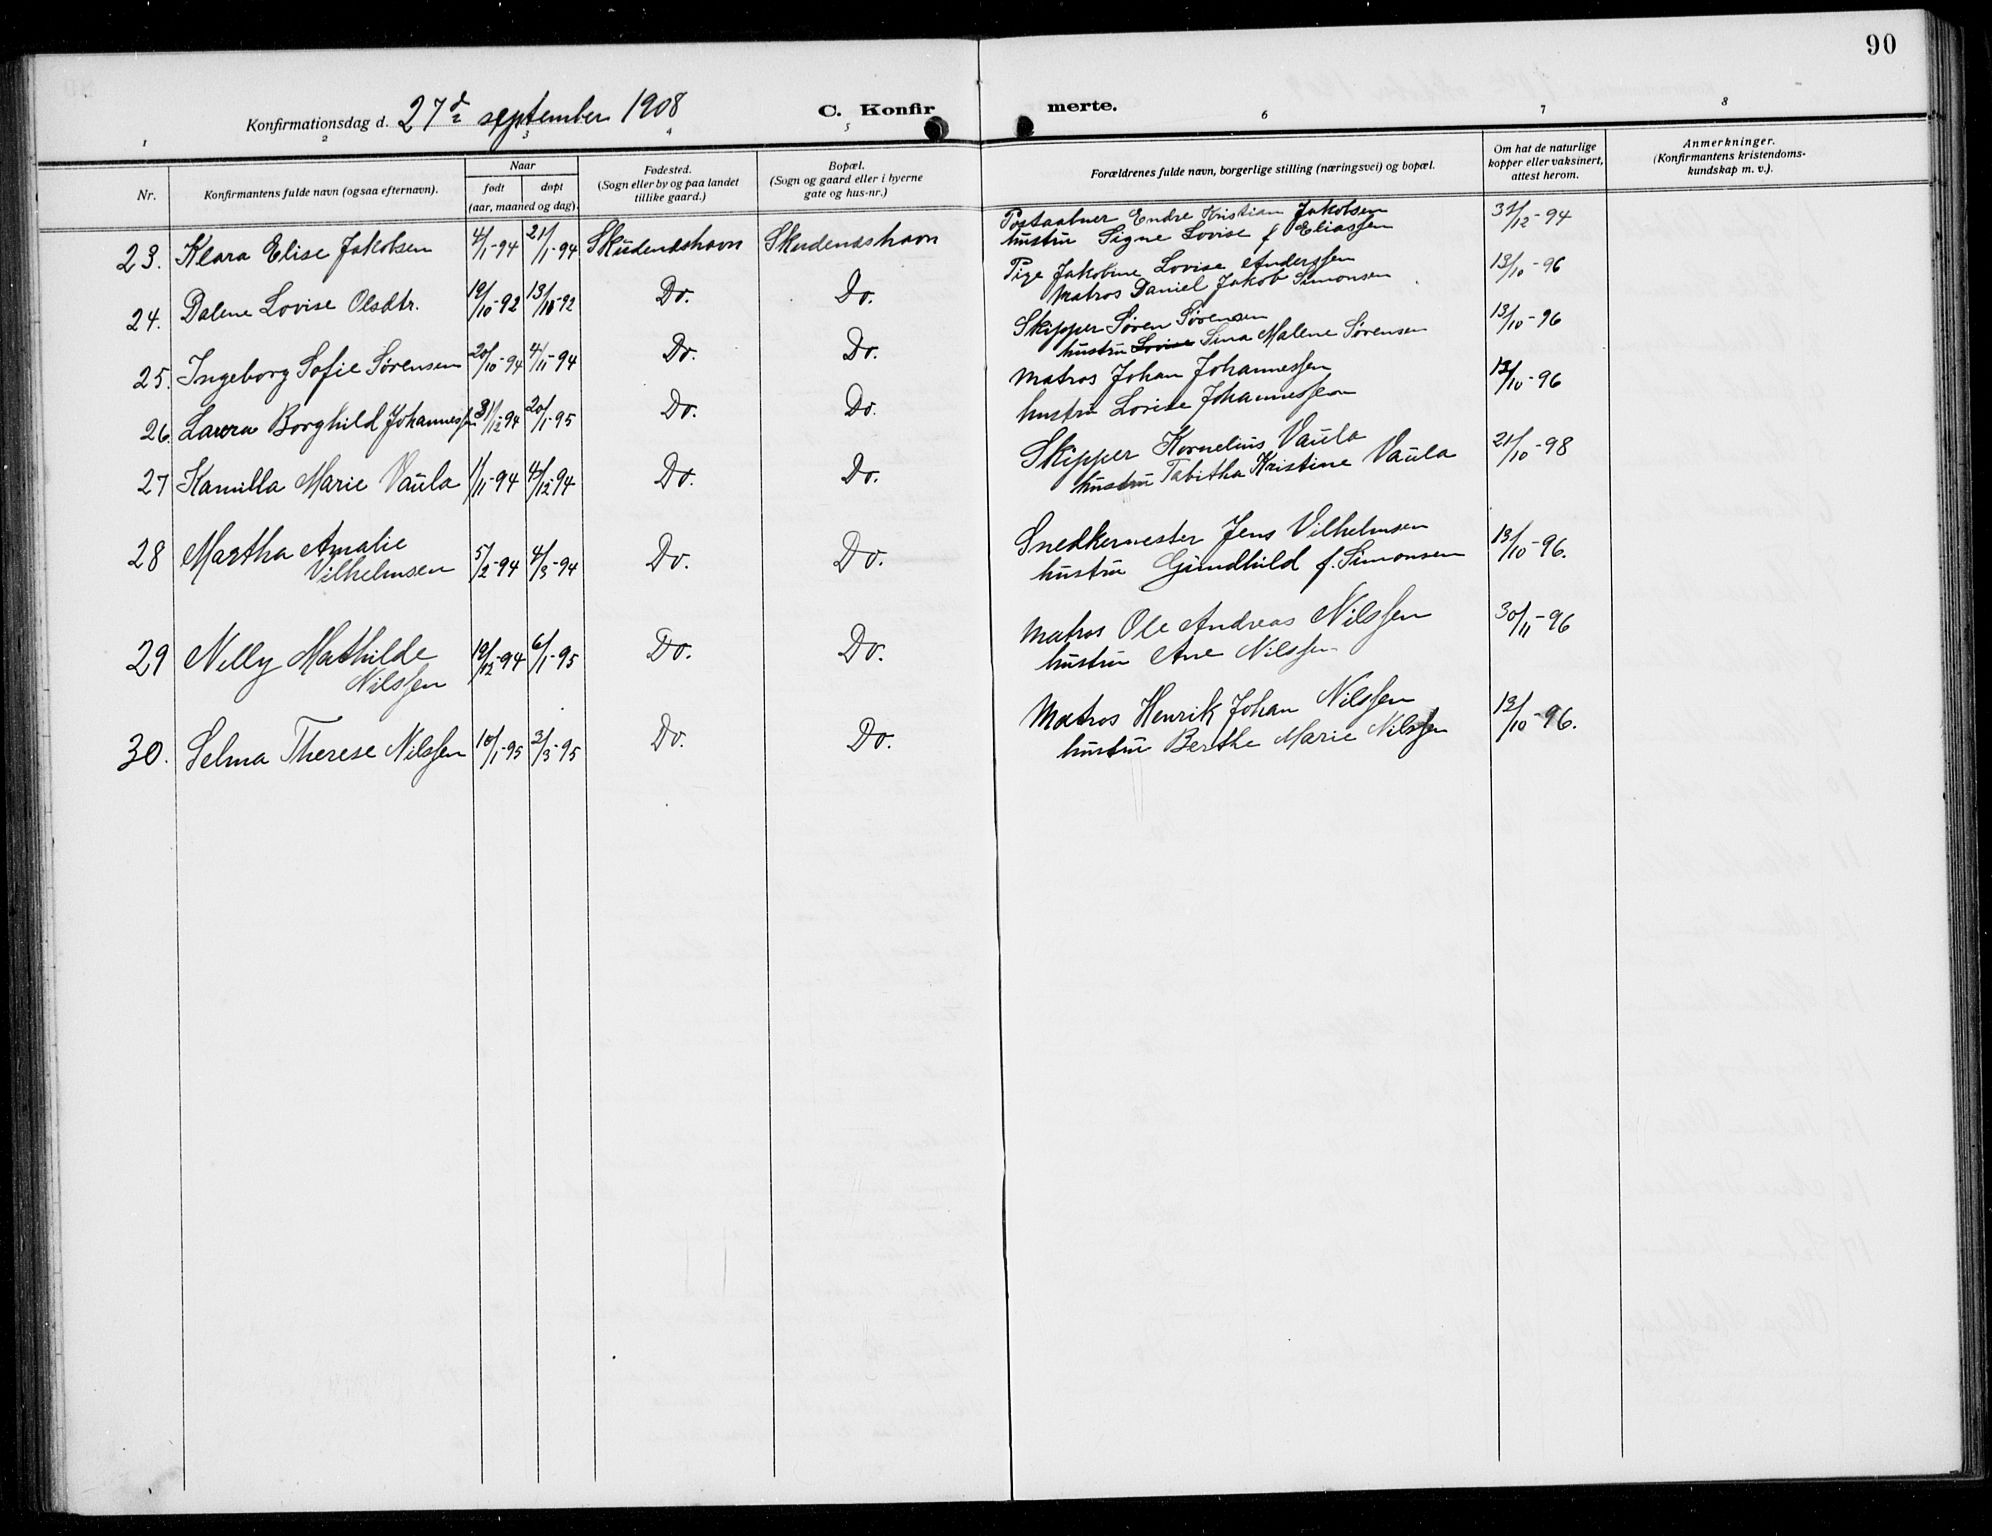 90
Konfirmationsdag d. 27de september 1908 C. Konfirmerte.
1 2 3 4 5 6 7 8
Nr. Konfirmantens fulde navn (ogsaa efternavn). Naar født døpt (aar, maaned og dag). Fødested. (Sogn eller by og paa landet tillike gaard.) Bopæl. (Sogn og gaard eller i byerne gate og hus-nr.) Forældrenes fulde navn, borgerlige stilling (næringsvei) og bopæl. Om hat de naturlige kopper eller vaksinert, attest herom. Anmerkninger. (Konfirmantens kristendoms-kundskap m. v.).
23. Klara Elise Jakobsen 4/1-94 21/1-94 Skudeneshavn Skudeneshavn Postaabner Endre Kristian Jakobsen 31/12-94
hustru Signe Lovise f Eliassen
24. Dalene Lovise Olsdtr. 19/10-92 13/11-92 Do. Do. Pige Jakobine Lovise Anderssen 13/10-96
Matros Daniel Jakob Simonsen
25. Ingeborg Sofie Sørensen 20/10-94 4/11-94 Do. Do. Skipper Søren Sørensen 13/10-96
hustru Lovise Sina Malene Sørensen
26 Laura Borghild Johannessen 31/12-94 20/1-95 Do. Do. Matros Johan Johannessen 13/10-96
hustru Lovise Johannessen
27 Kamilla Marie Vaula 1/11-94 4/12-94 Do. Do. Skipper Kornelius Vaula 21/10-98
hustru Tabitha Kristine Vaula
28 Martha Amalie 5/2-94 4/3-94 Do. Do. Snedkermester Jens Vilhelmsen 13/10-96.
Vilhelmsen hustru Gundhild f. Simonsen
29 Nelly Mathilde 19/12-94 6/1-95 Do. Do. Matros Ole Andreas Nilssen 30/11-96
Nilssen hustru Ane Nilssen
30. Selma Therese Nilssen 10/1-95 3/3-95 Do. Do. Matros Henrik Johan Nilssen 13/10-96.
hustru Berthe Marie Nilssen